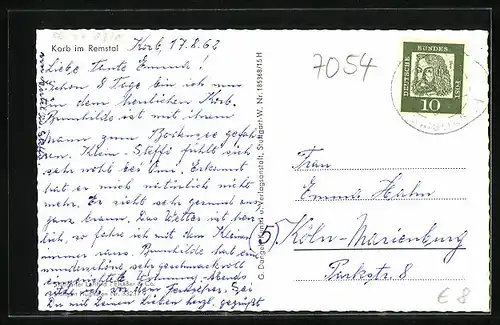 Korb im Remstal
Korb, 17.8.62
Liebe Tante Emma!
Schon 8 Tage bin ich nun
in dem herrlichen Korb.
Brunhilde ist mit ihrem
Mann zum Bodensee gefah
ren. Klein-Steffi fühlt sich
sehr wohl bei Omi. Erkannt
hat er mich natürlich nicht
mehr. Er sieht sehr gesund aus,
ganz braun. Das Wetter ist herr
lich, so fahre ich mit dem Kleinen
viel aus. Brunhilde hat eine
wunderschöne, sehr geschmackvoll
eingerichtete Wohnung.
Sei
Du mit Deinen Lieben herzl. gegrüßt
G. Dangel, Verlagsanstalt, Stuttgart-W, Nr. 185368/15 H
7054
DEUTSCHE
BUNDES
POST
10
Frau
Emma Hahn
(5) Köln-Marienburg
Parkstr. 8
€ 8